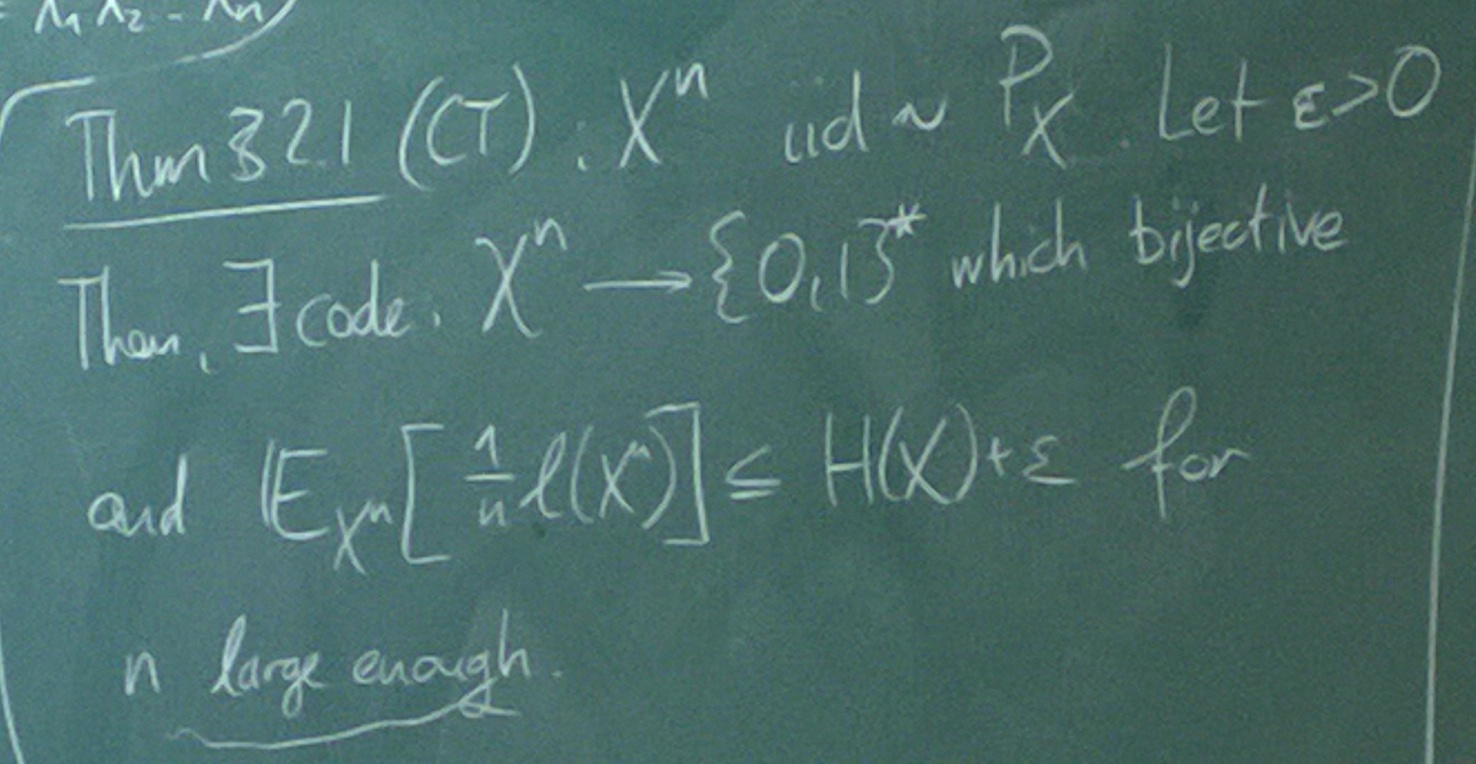 Thm 3.2.1 (CT): Xⁿ iid ~ P_X. Let ε>0
Then, ∃ code: 𝒳ⁿ → {0,1}* which bijective
and 𝔼_Xⁿ[1/n ℓ(Xⁿ)] ≤ H(X)+ε for
n large enough.